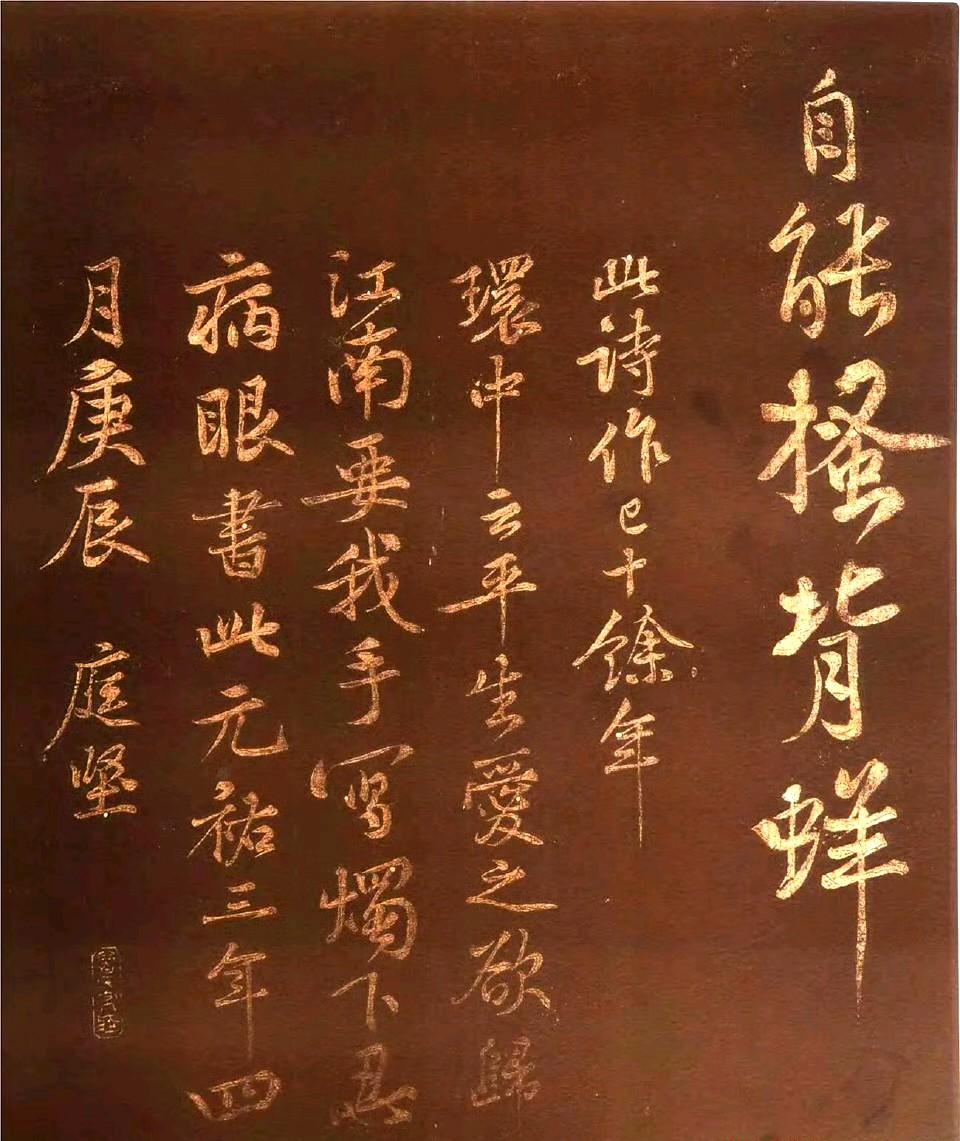 自能搔背蛘
此诗作已十馀年
環中云平生愛之欲歸
江南要我手写燭下忍
病眼書此元祐三年四
月庚辰 庭坚